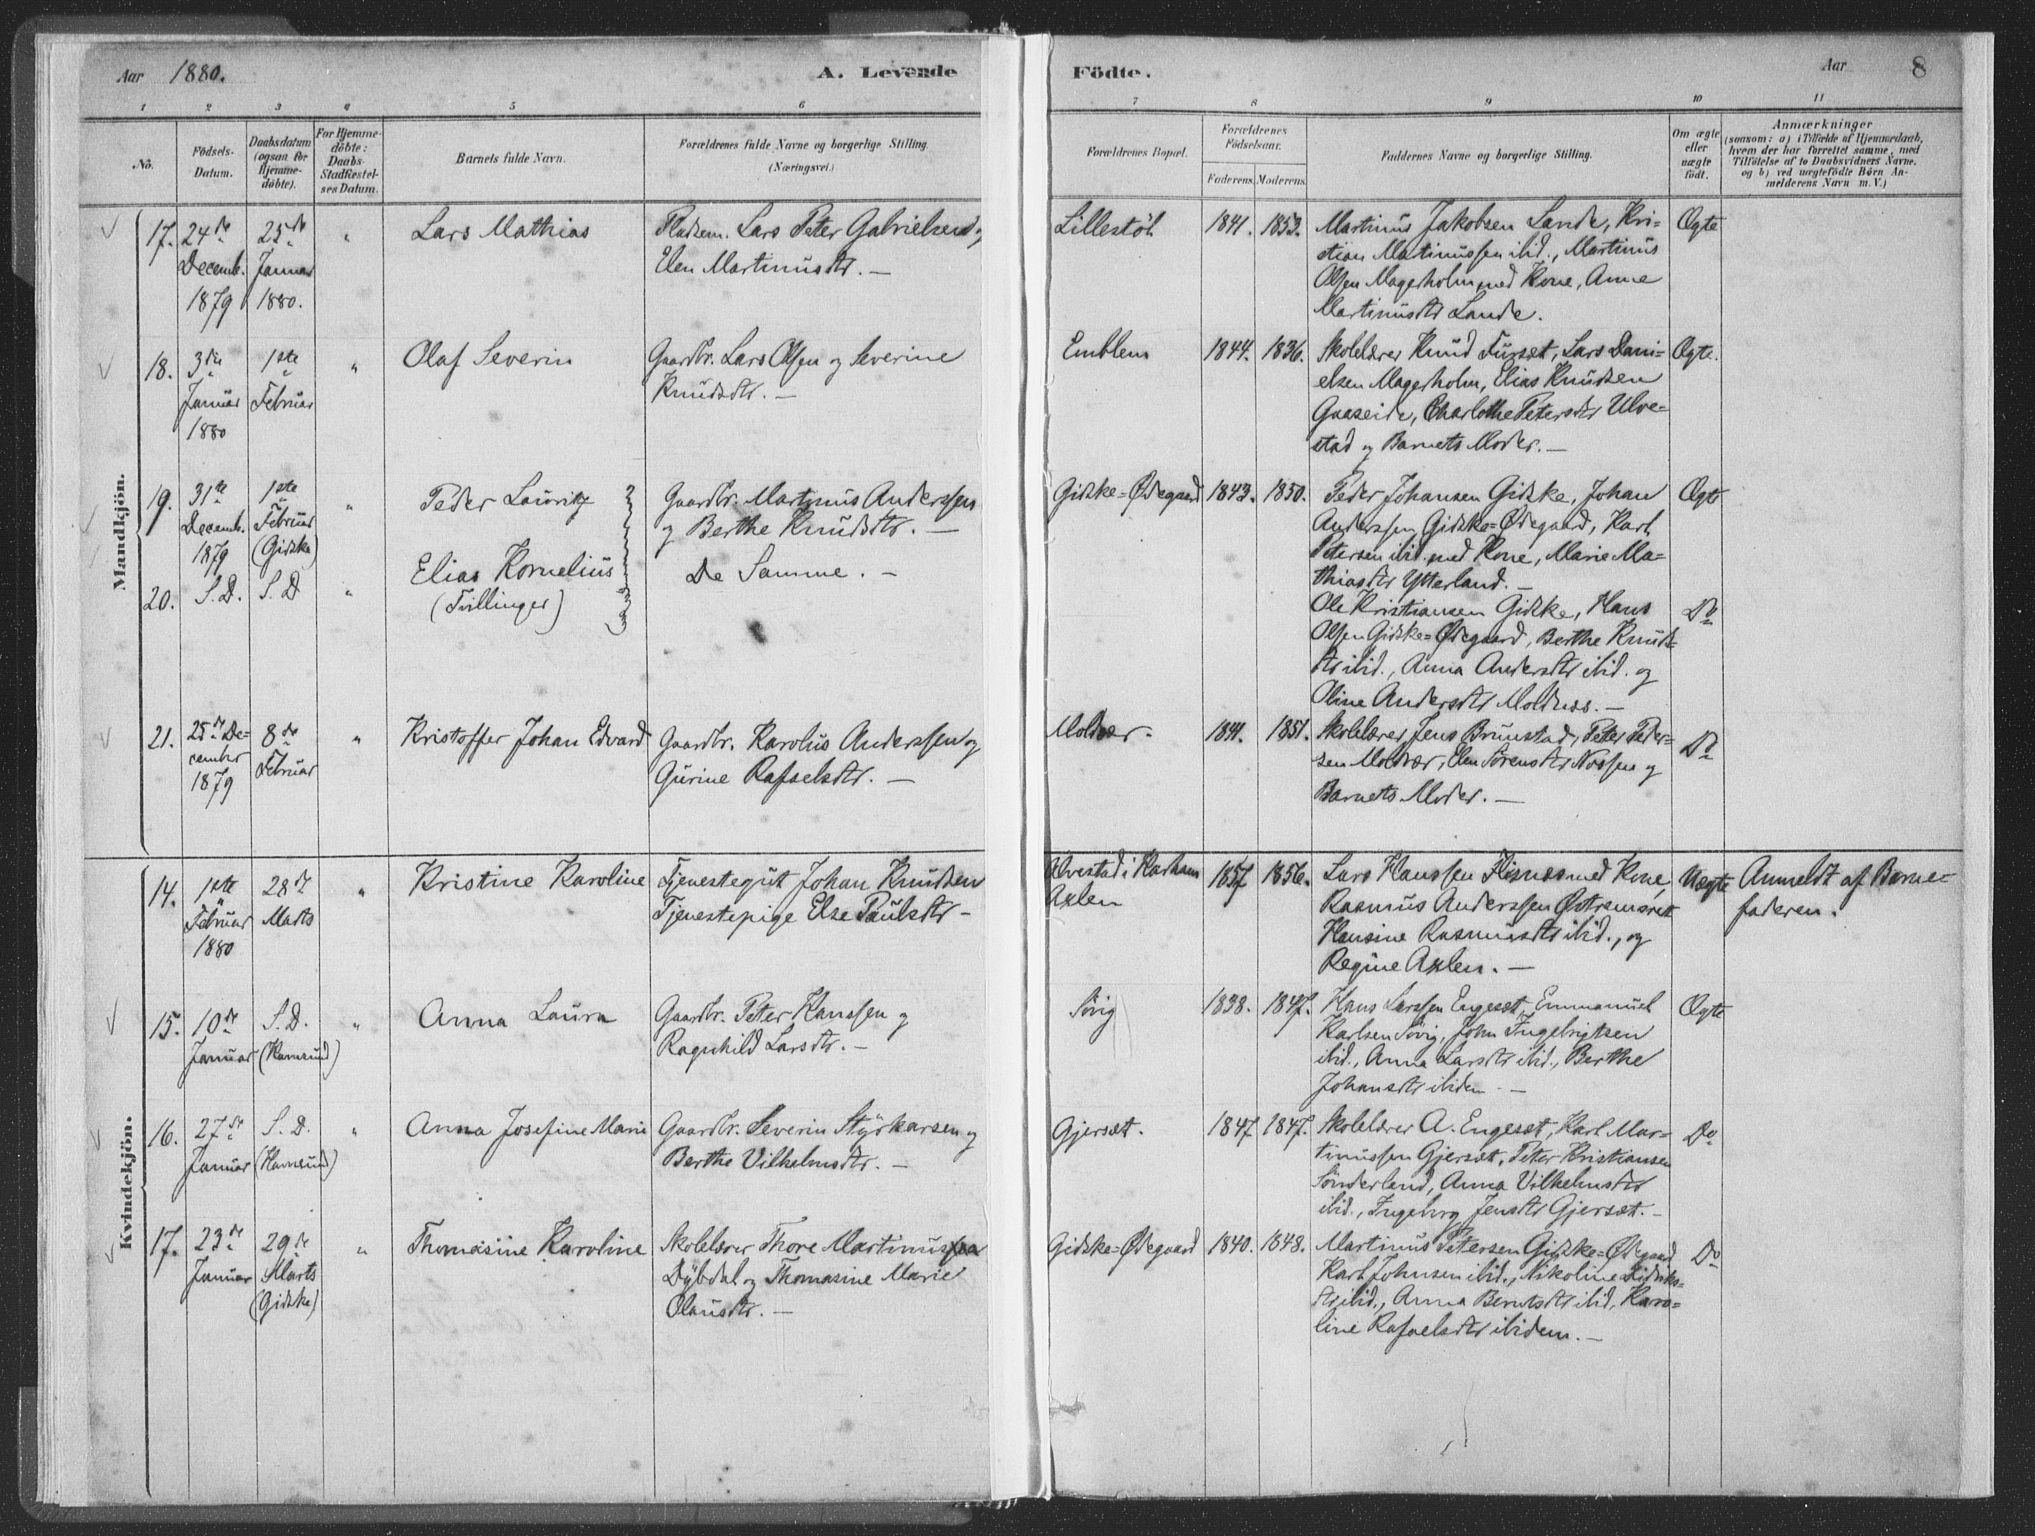 Aar 1880.
A. Levende
Födte.
Aar
8
1 2 3 4 5 6 7 8 9 10 11
No.
Födsels-
Datum.
Daabsdatum
(ogsaa for
Hjemme-
döbte).
For Hjemme-
döbte:
Daabs-
Stadfæstel-
ses Datum.
Barnets fulde Navn.
Forældrenes fulde Navne og borgerlige Stilling.
(Næringsvei.)
Forældrenes Bopæl.
Forældrenes
Födselsaar.
Faderens. Moderens.
Faddernes Navne og borgerlige Stilling.
Om ægte
eller
uægte
födt.
Anmærkninger
(saasom: a) i Tilfælde af Hjemmedaab,
hvem der har forrettet samme, med
Tilföielse af to Daabsvidners Navne.
og b) ved uægtefödte Börn An-
melderens Navn m. V.)
Mandkjön.
17. 24de
Decemb.
1879
25de
Januar
1880.
"
Lars Mathias
Pladsm. Lars Peter Gabrielsen og
Elen Martinusdtr. —
Lillestöl
1841. 1853.
Martinus Jakobsen Sande, Kri-
stian Martinussen ibid., Martinus
Olsen Magerholm med Kone, Anne
Martinusdtr Sande.
Ægte
18. 3die
Januar
1880
1ste
Februar
"
Olaf Severin
Gaardbr. Lars Olsen og Severine
Knudsdtr. —
Emblem
1844. 1836.
Skolelærer Knud Furset, Lars Dani-
elsen Magerholm, Elias Knudsen
Gaaseide, Charlothe Petersdtr Ulve-
stad og Barnets Moder. —
Ægte.
19. 31te
Decemb.
1879
1ste
Februar
(Gidske)
"
Peder Lauritz
Gaardbr. Martinus Anderssen
og Berthe Knudsdtr. —
Gidske-Ödegaard
1843. 1850.
Peder Johansen Gidske, Johan
Anderssen Gidske-Ödegaard, Karl
Petersen ibid. med Kone, Marie Ma-
thiasdtr Ytterland. —
Ægte
20. S.D. S.D "
Elias Kornelius
(Tvillinger)
De Samme. —
Ole Kristiansen Gidske, Hans
Olsen Gidske-Ödegaard, Berthe Knuds-
dtr ibid., Anna Andersdtr ibid. og
Oline Andersdtr Moldnes. —
Do
21. 25de De-
cember
1879
8de
Februar
"
Kristoffer Johan Edvard
Gaardbr. Karolus Anderssen og
Gurine Rafaelsdtr. —
Moldvær.
1841. 1851.
Skolelærer Jens Brunstad, Peter Peder-
sen Moldvær, Elen Sörensdtr og
Barnets Moder. —
Do
Kvindekjön.
14. 1ste
Februar
1880
28de
Marts
"
Kristine Karoline
Tjenestegut Johan Knudsen
Tjenestepige Else Paulsdtr —
Ulvestad i
Axlen
1857 1856.
Lars Hanssen Flisnes med Kone,
Rasmus Anderssen
Hansine Rasmusdtr ibid., og
Regine Axlen. —
Uægte
Anmeldt af Barne-
faderen.
15. 10de
Januar
S.D.
(Hamsund)
"
Anna Laura
Gaardbr. Peter Hanssen og
Ragnhild Larsdtr. —
Sövig
1838. 1847.
Hans Larssen Engeset, Emmanuel
Karlsen Sövig, John Ingebrigtsen
ibid., Anna Larsdtr ibid., Berthe
Johansdtr ibidem. —
Ægte
16. 27de
Januar
S.D.
(Hamsund)
"
Anna Josefine Marie
Gaardbr. Severin Styrkarsen og
Berthe Vilhelmsdtr. —
Gjersæt.
1847 1847.
Skolelærer A. Engeset, Karl Mar-
tinussen Gjersæt, Peter Kristiansen
Sönderland, Anna Vilhelmsdtr
ibid., Ingeborg Jensdtr Gjersæt. —
Do
17. 23de
Januar
29de
Marts
(Gidske)
"
Thomasine Karoline
Skolelærer Thore Martinussen
Dybdal og Thomasine Marie
Olausdtr. —
Gidske-Ödegaard
1840. 1848.
Martinus Petersen Gidske-Ödegaard,
Karl Johnsen ibid., Nikoline Didriks-
dtr ibid., Anna Berntsdtr ibid, Karo-
line Rafaelsdtr ibidem. —
Do